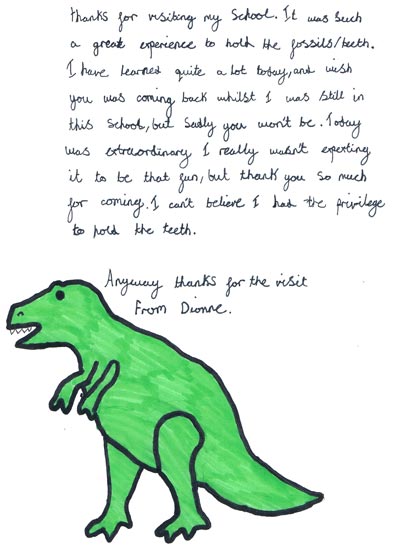 thanks for visiting my School. It was such
a great experience to hold the fossils/teeth.
I have learned quite a lot today, and wish
you was coming back whilst I was still in
this School, but Sadly you won't be. Today
was extraordinary I really wasn't expecting
it to be that fun, but thank you so much
for coming. I can't believe I had the privilege
to hold the teeth.
Anyway thanks for the visit
From Dionne.